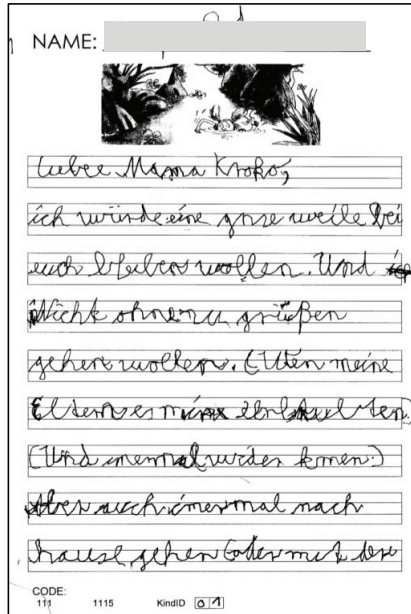 NAME:
Liebe Mama Kroko,
ich würde eine gnze weile bei
euch bleiben wollen. Und
Nicht ohne zu grüßen
gehen wollen. (Wen meine
Eltern es mir
(Und mermal wider komen.)
Aber auch imermal nach
hause gehen (oder mit
CODE:
111 1115 KindID 01